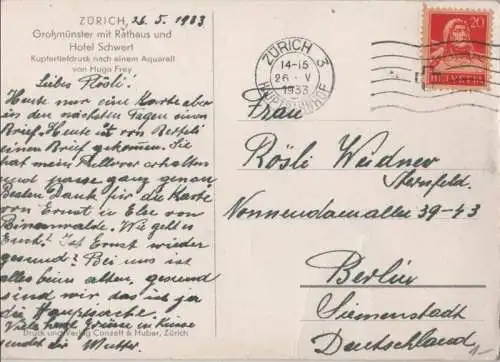 ZÜRICH, 26. 5. 1933
Großmünster mit Rathaus und
Hotel Schwert
Kupfertiefdruck nach einem Aquarell
von Hugo Frey
Liebes Rösli!
Heute nur eine Karte aber
in den nächsten Tagen einen
Brief. Heute ist von
einen Brief gekommen. Sie
hat meinen Pullover erhalten
und passe ganz genau
Besten Dank für die Karte
von Ernst u. Else von
Binenwalde. Wie geht es
Ernst? Ist Ernst wieder
gesund? Bei uns ist
alles beim alten, gesund
sind wir, das ist ja
die Hauptsache.
Viele herzl. Grüsse in Kürze
sendet die Mutter.
Druck und Verlag Conzett & Huber, Zürich
ZÜRICH 3
14-15
26. V
1933
HAUPTBAHNHOF
20
HELVETIA
Frau
Rösli Weidner
Sternfeld.
Nonnendamallee 39-43
Berlin
Siemenstadt
Deutschland